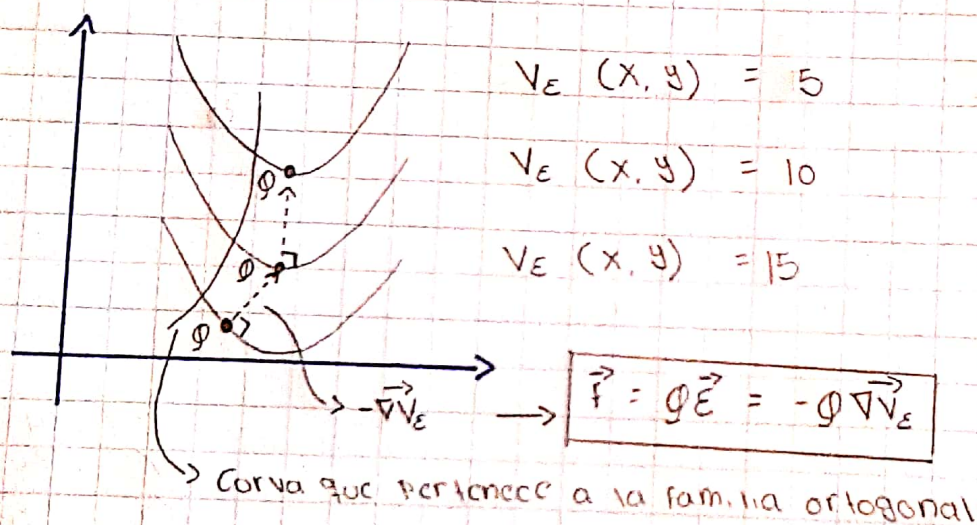 Vε (x, y) = 5
Vε (x, y) = 10
Vε (x, y) = 15
φ
φ
φ
-∇Vε → f = φε = -φ∇Vε
Corva que pertenece a la familia ortogonal